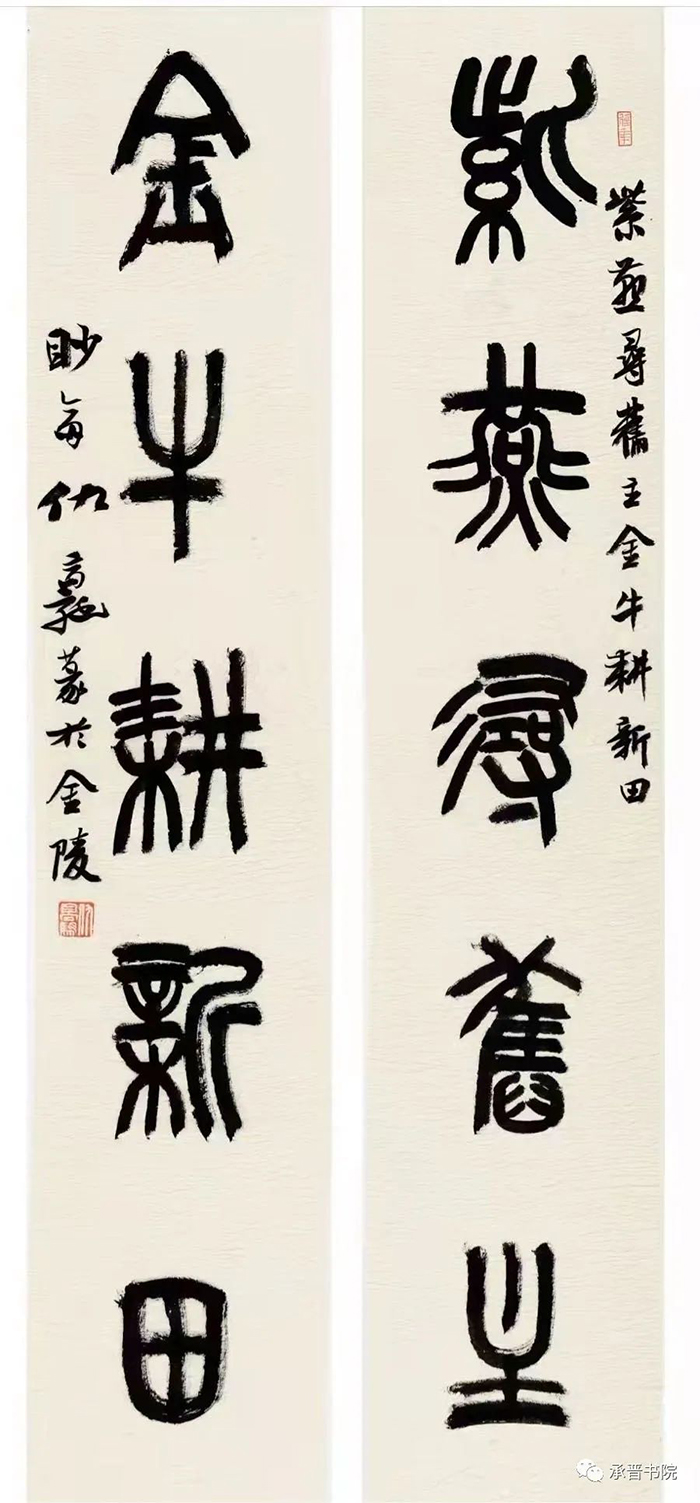 紫燕尋舊主金牛耕新田
紫燕尋舊主
金牛耕新田
眇仇高篆於金陵
承晋书院